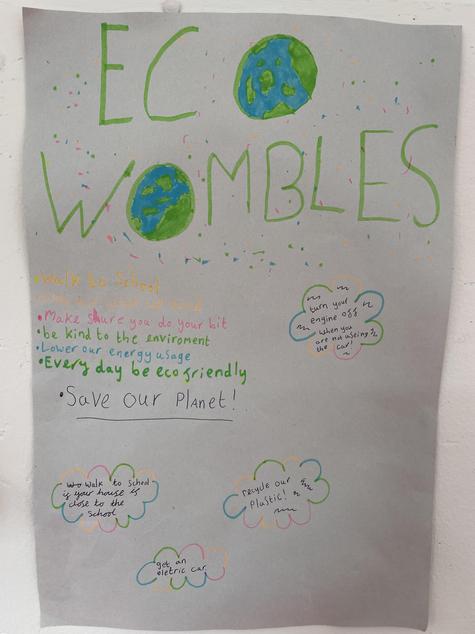 ECO
WOMBLES
• Walk to School
• Make shure you do your bit
• be kind to the enviroment
• Lower our energy usage
• Every day be eco friendly
• Save our Planet!
turn your
engine off
when you
are not useing
the car!
walk to school
is your house is
close to the
school
recycle our
Plastic!
get an
eletric car